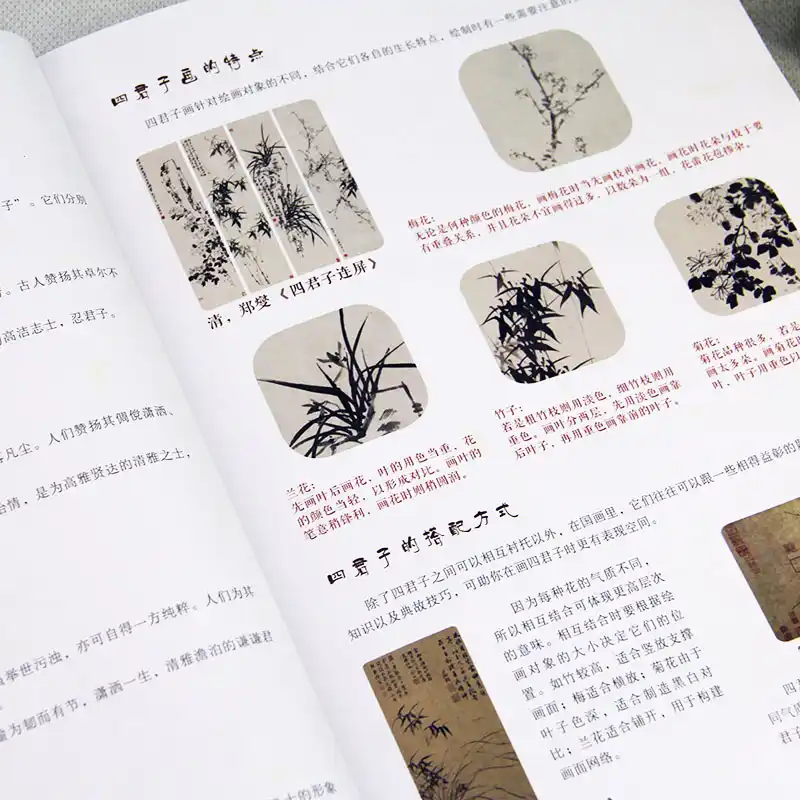 子”。它们分别
古人赞扬其卓尔不
高洁志士，忍君子。
凡尘。人们赞扬其倜傥潇洒、
情，是为高雅贤达的清雅之士，
亦可自得一方纯粹。人们为其
举世污浊，
为韧而有节，潇洒一生，清雅澹泊的谦谦君
士的形象
四君子画的特点
四君子画针对绘画对象的不同，结合它们各自的生长特点，绘制时有一些需要注意的
清，郑燮《四君子连屏》
梅花：
无论是何种颜色的梅花，画梅花时当先画枝再画花，画花时花朵与枝干要
有重叠关系，并且花朵不宜画得过多，以数朵为一组，花蕾花苞修杂。
兰花：
先画叶后画花，叶的用色当重，花
的颜色当轻，以形成对比。画叶的
笔意稍锋利，画花时则稍圆润。
竹子：
若是粗竹枝则用淡色，细竹枝则用
重色。画叶分两层，先用淡色画靠
后叶子，再用重色画靠前的叶子。
菊花：
菊花品种很多，若是
画太多朵，画菊花
叶，叶子用重色
四君子的搭配方式
除了四君子之间可以相互衬托以外，在国画里，它们往往可以跟一些相得益彰的
知识以及典故技巧，可助你在画四君子时更有表现空间。
因为每种花的气质不同，
所以相互结合可体现更高层次
的意味。相互结合时要根据绘
画对象的大小决定它们的位
置。如竹较高，适合竖放支撑
画面；梅适合横放；菊花由于
叶子色深，适合制造黑白对
比；兰花适合铺开，用于构建
画面网络。
四
同气
君子